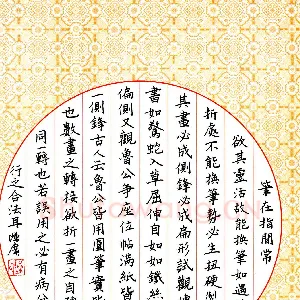 筆在指間常
欲其靈活故能換筆如遇
折處不能換筆勢必生扭硬
其畫必成側鋒必成扁形試觀
書如驚蛇入草屈伸自如如鐵
偏側又觀魯公爭坐位帖滿紙皆
一側鋒古人云魯公皆用圓筆實
也數畫之轉接欲折一畫之自
同一轉也若誤用之必有病
行之合法耳